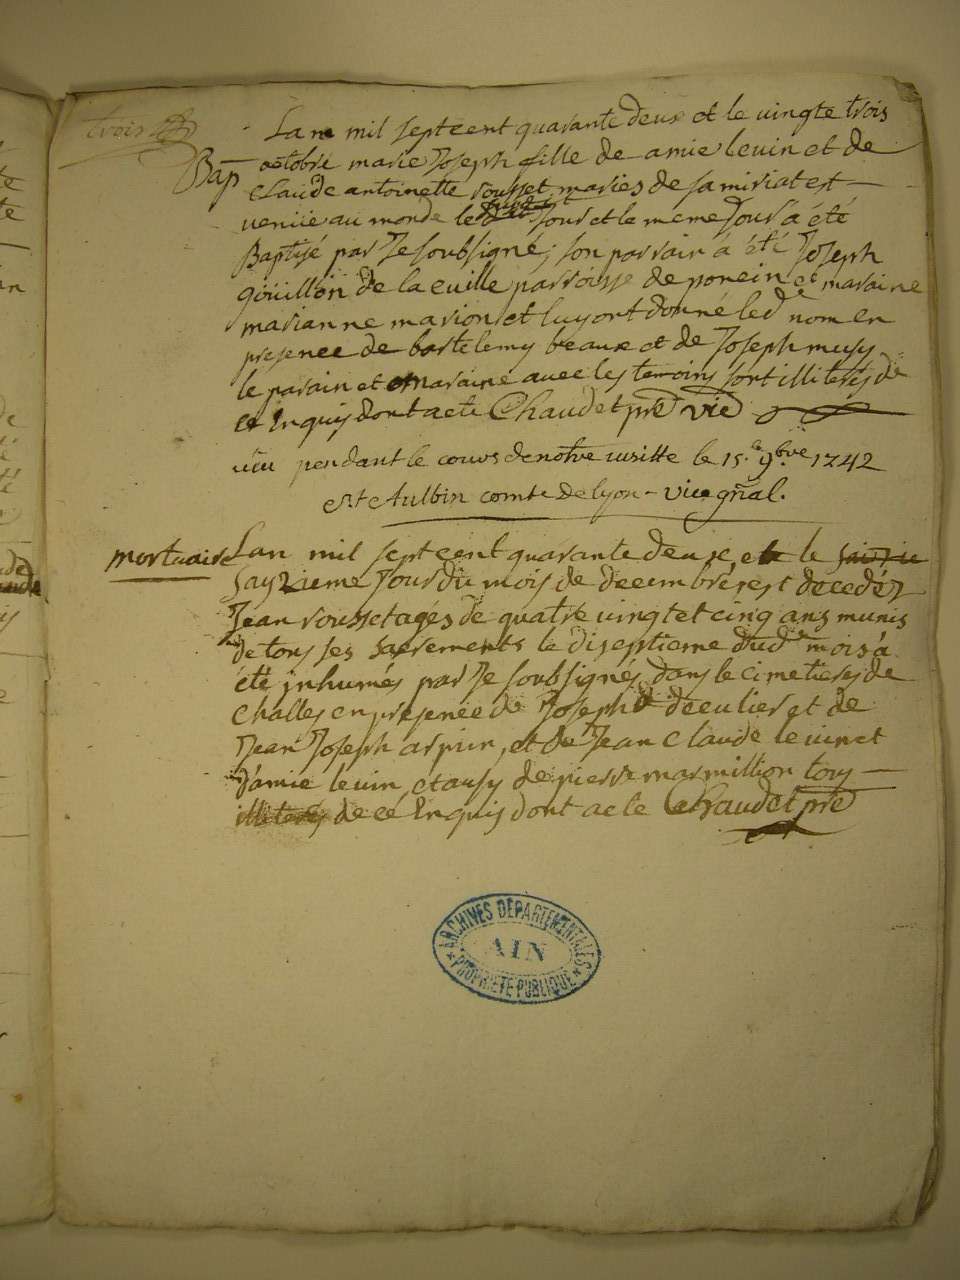 trois
Lan mil sept cent quarante deux et le vingte trois
Bap octobre marie Joseph fille de amie levin et de
claude antoinette rousset maries de samiriat est
venüe au monde led Jour et le meme Jour a été
Baptisé par Je soubsigné; son parrain a été Joseph
goüillon de la cuille parroisse de poncin et maraine
marianne marion et luy ont donné led nom en
presence de bartelemy beaux et de Joseph musy
le parain et maraine avec les temoins sont illiterés de
ce Enquis dont acte Chaudet pre vic
vëu pendant le cours de notre visitte le 15.e 9.bre 1742
St Aulbin comte de lyon - vic gñal.
mortuaire Lan mil sept cent quarante deux et le
sayzieme Jour du mois de decembre est decedez
Jean rousset agés de quatre vingt et cinq ans munis
de tous ses sacrements le diseptieme dud mois a
été inhumés par Je soubsignés dans le cimetieres de
Challes en presence de Joseph deculier et de
Jean Joseph arpin, et de Jean claude levin et
d'amie levin, et ausy de pierre marmillion tous
illiterés de ce Enquis dont acte Chaudet pre
ARCHIVES DÉPARTEMENTALES
AIN
PROPRIÉTÉ PUBLIQUE